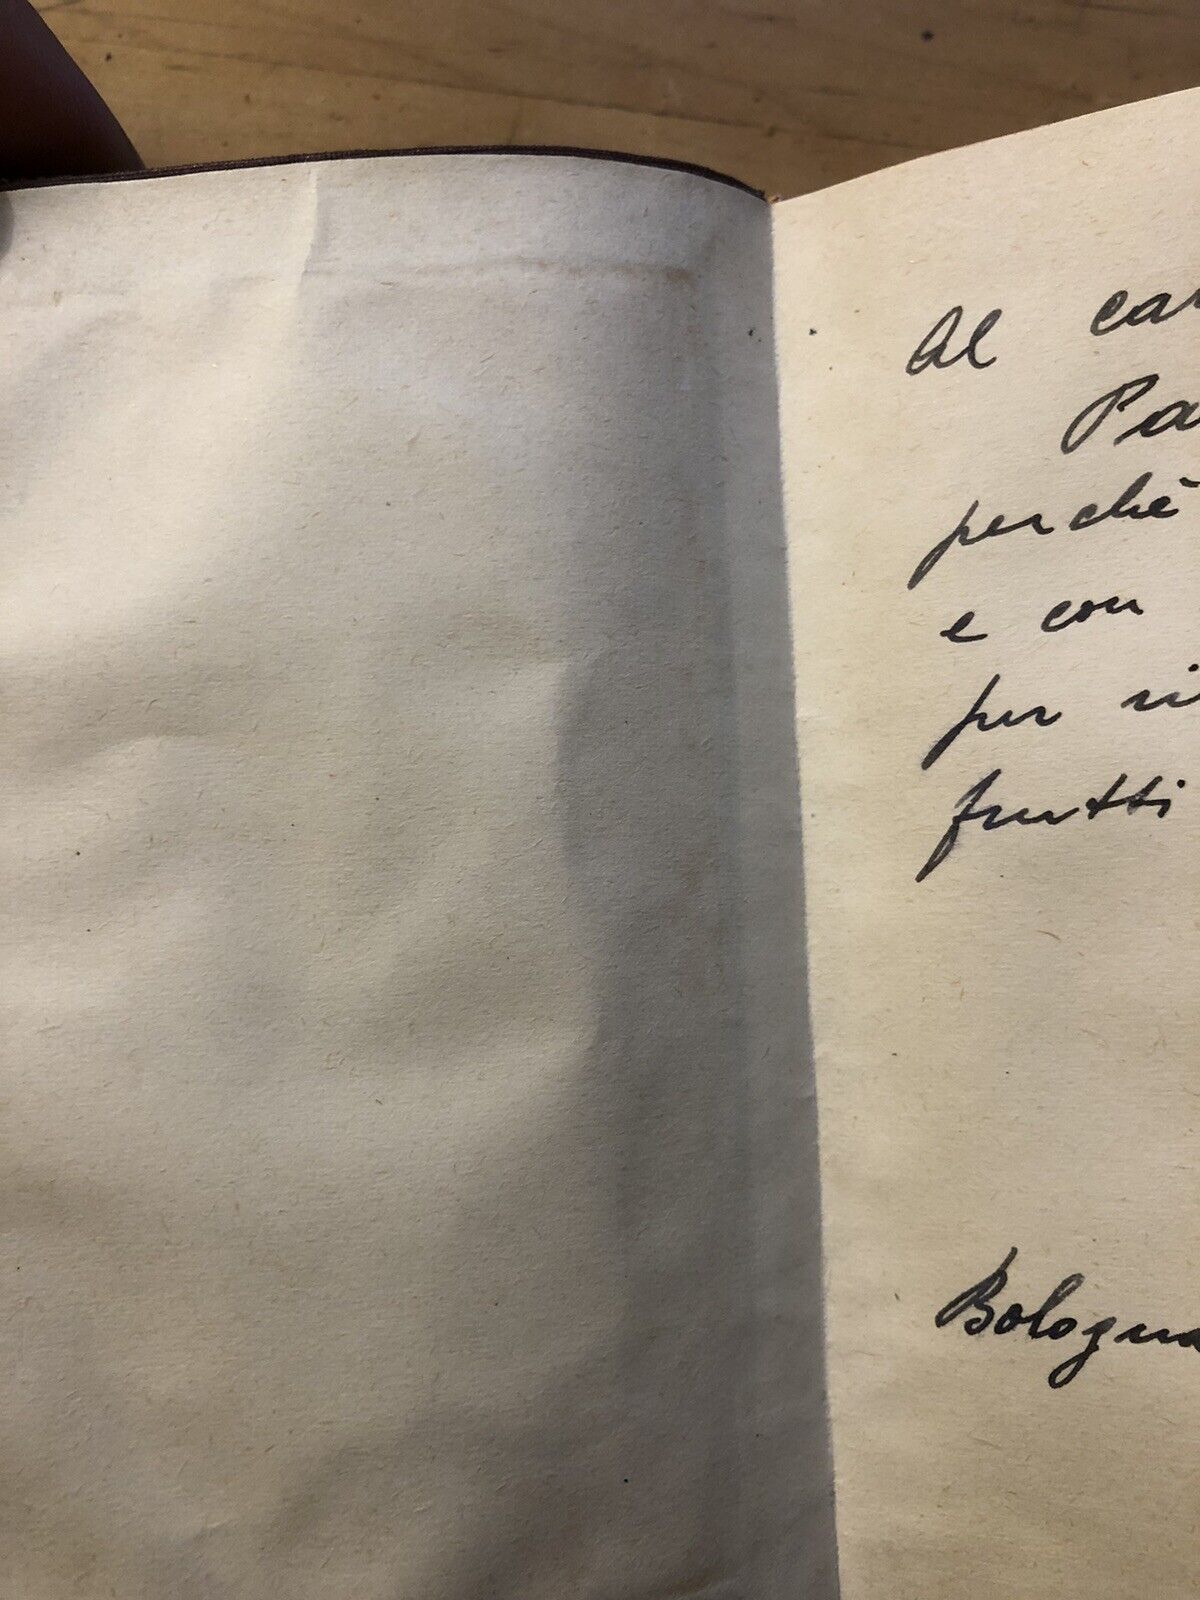 Al car
Pa
perchè
e con
per ri
frutti
Bologna